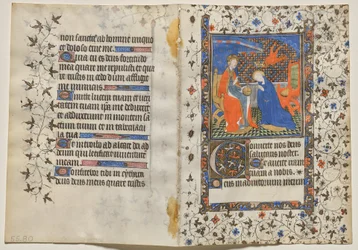 non sancta ab homine iniquo
et doloso erue me.
Quia tu es deus fortitudo
mea quare me repulisti et qua
re tristis incedo dum affligit
me inimicus.
Emitte lucem tuam et veri
tatem tuam ipsa me deduxe
et adduxerunt in montem sa
ctum tuum et in tabernacula
tua
Et introibo ad altare dei ad
deum qui letificat iuventutem
meam.
Confitebor tibi in cythara
deus deus meus quare tristis
Converte nos deus
salutaris noster.
Et averte iram
tuam a nobis.
Deus in adiutorium meum